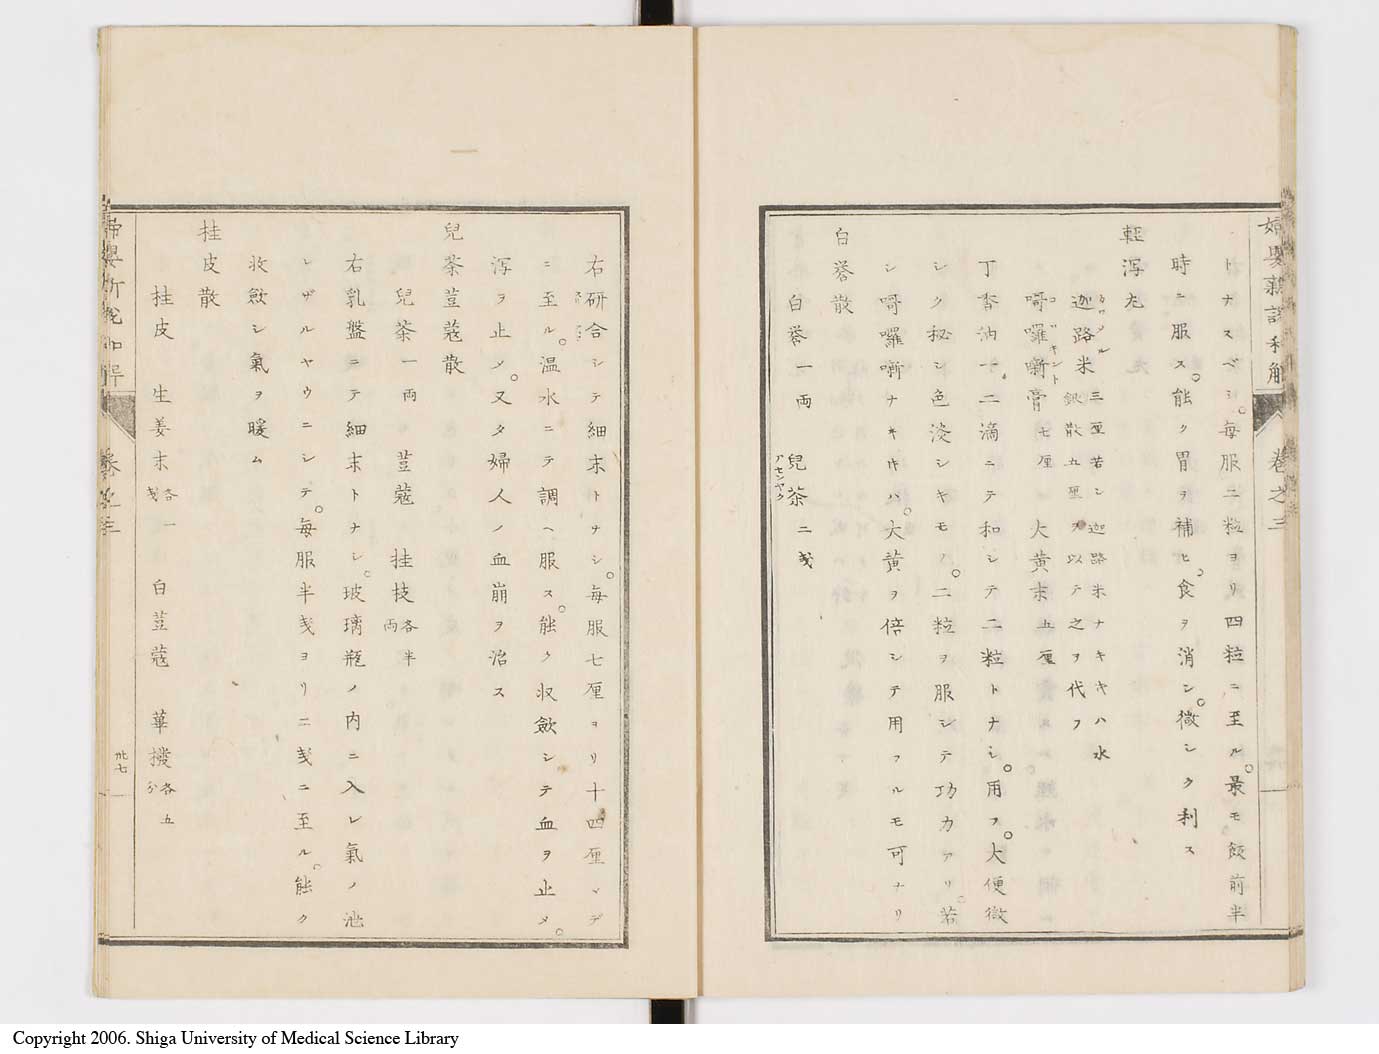 婦嬰新説和解 巻之三
トナスベシ。毎服二粒ヨリ四粒ニ至ル。最モ飯前半
時ニ服ス。能ク胃ヲ補ヒ。食ヲ消ン。微シク利ス
軽瀉丸
迦路米 三厘若シ迦路米ナキキハ水
銀散五厘ヲ以テ之ヲ代フ
カロメル
嗬囉噺膏 七厘 大黄末 五厘
丁香油 一二滴ニテ和シテ二粒トナシ。用フ。大便微
シク秘シ色淡シキモノ。二粒ヲ服シテ功力アリ。若
シ嗬囉噺ナキキハ。大黄ヲ倍シテ用フルモ可ナリ
白礬散
白礬一両 兒茶二戔
アセンヤク
右研合シテ細末トナシ。毎服七厘ヨリ十四厘マデ
ニ至ル。温水ニテ調ヘ服ス。能ク収歛シテ血ヲ止メ。
瀉ヲ止メ。又タ婦人ノ血崩ヲ治ス
兒茶荳蔲散
兒茶一両 荳蔲 桂枝各半両
右乳盤ニテ細末トナシ。玻璃瓶ノ内ニ入レ氣ノ泄
レザルヤウニシテ。毎服半戔ヨリ二戔ニ至ル。能ク
收歛シ氣ヲ暖ム
桂皮散
桂皮 生姜末各一戔 白荳蔲 蓽撥各五分
卅七
Copyright 2006. Shiga University of Medical Science Library